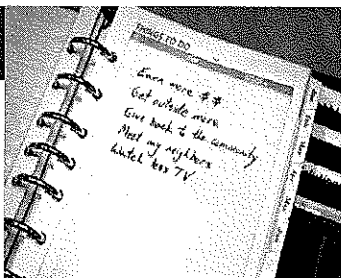 THINGS TO DO
Earn more $$
Get outside more
Give back to the community
Meet my neighbors
Watch less TV